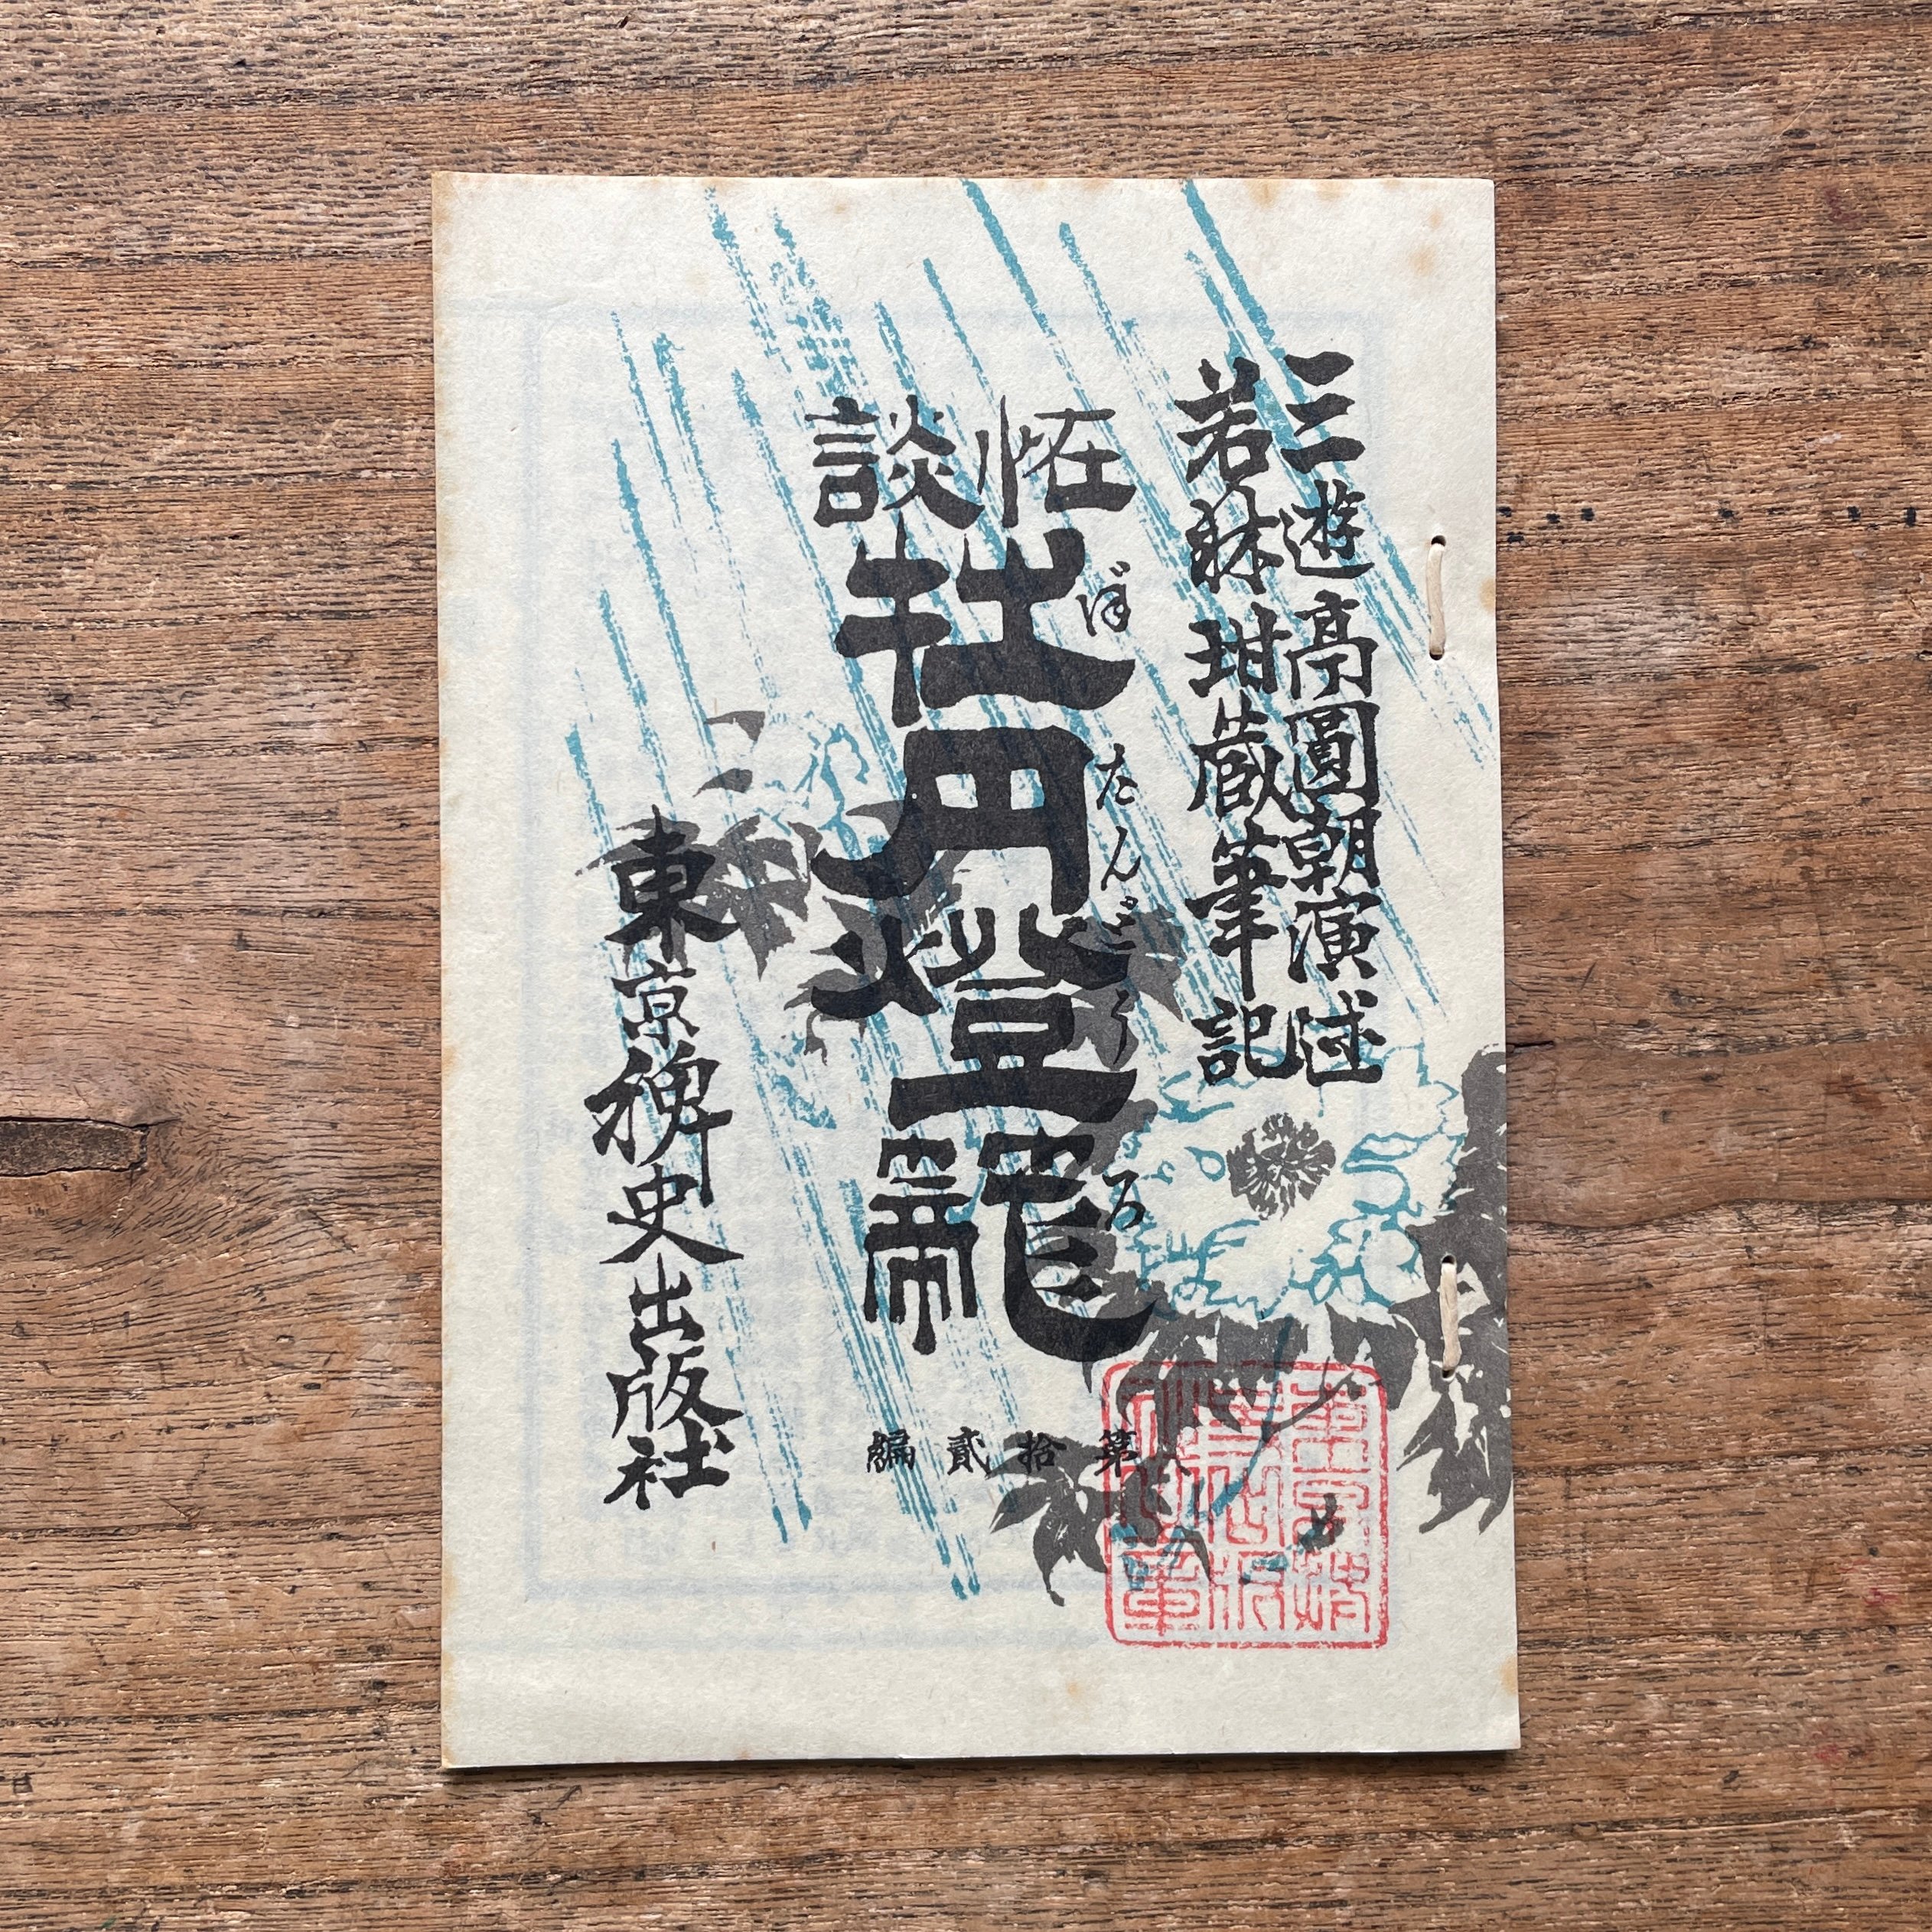 三遊亭圓朝演述
若林玵藏筆記
恠談
牡丹燈籠
ぼたんどうろ
第拾貳編
東京稗史出版社